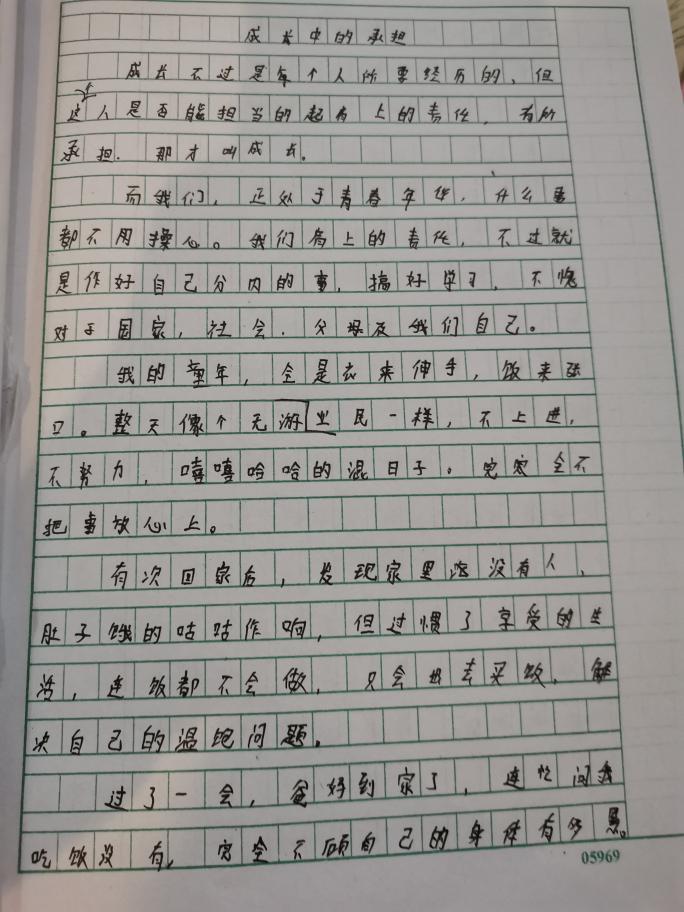 成长中的承担
成长不过是每个人所要经历的，但
这个人是否能担当的起肩上的责任，有所
承担．那才叫成长。
而我们，正处于青春年华．什么事
都不用操心。我们肩上的责任，不过就
是作好自己分内的事，搞好学习，不愧
对于国家，社会．父母及我们自己。
我的童年，全是衣来伸手，饭来张
口。整天像个无游业民一样，不上进，
不努力，嘻嘻哈哈的混日子。完全不
把事放心上。
有次回家后，发现家里没有人，
肚子饿的咕咕作响，但过惯了享受的生
活，连饭都不会做，只会出去买饭，解
决自己的温饱问题。
过了一会，爸好到家了，连忙问我
吃饭没有，完全不顾自己的身体有多累。
05969